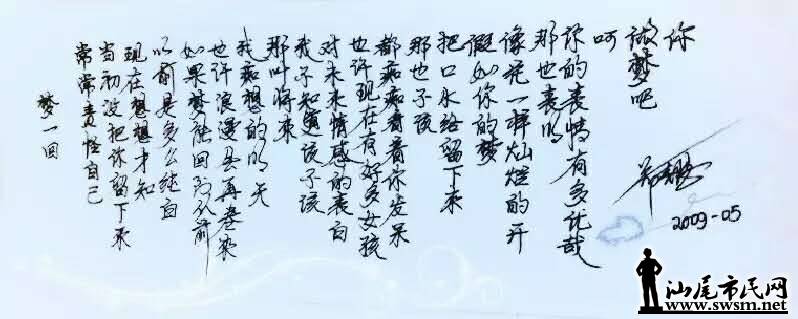 梦一回
常常责怪自己
当初没把你留下来
现在想想才知
以前是多么纯白
如果梦能回到从前
也许浪漫会再卷来
我痴想的明天
那叫将来
我不知道该不该
对未来情感的表白
也许现在有好多女孩
都痴痴看着你发呆
那也不该
把口水给留下来
假如你的梦
像花一样灿烂的开
那也表明
你的表情有多优哉
呵
做梦吧
你
2009-05
汕尾市民网
www.swsm.net